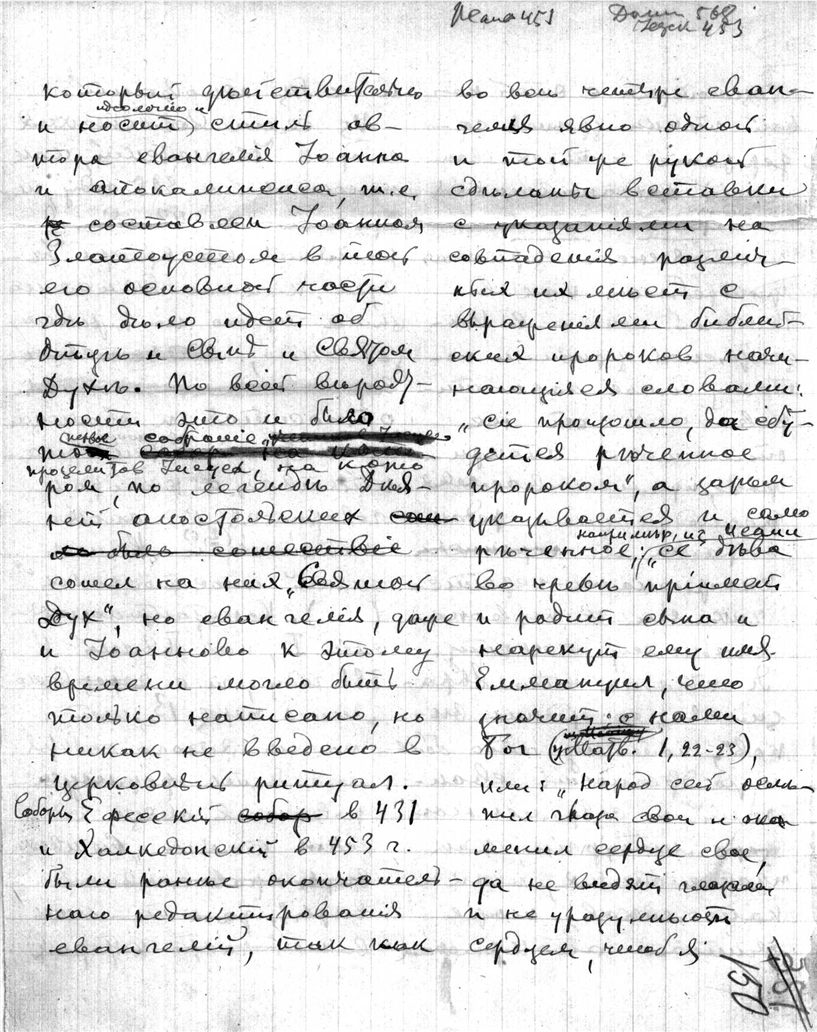 453
453
который действительно
и носит стиль ав-
тора евангелія Іоанна
и апокалипсиса, т.е.
составлен Іоанном
Златоустом в той
его основной части
гдѣ дѣло идет об
Отцѣ и Сынѣ и Святом
Духѣ. По всей вѣроят-
ности это и было
первое собраніе
на кото
ром, по легендѣ Дѣя-
ній апостольских
сошествіе
сошел на них „Святой
Дух“, но евангелія, даже
и Іоанново к этому
времени могло быть
только написано, но
никак не введено в
церковный ритуал.
Соборы Ефесскій собор в 431
и Халкедонскій в 453 г.
были раньше окончатель-
наго редактированія
евангелій, так как
во всѣ четыре еван-
гелія явно одной
и той же рукой
сдѣланы вставки
с указаніями на
совпаденія различ-
ных их мѣст с
выраженіями библей-
ских пророков начи-
нающіяся словами:
„сіе произошло, да сбу-
дется реченное
пророком“, а затѣм
указывается и само
например, из Исаии
реченное: „се дѣва
во чревѣ пріимет
и родит сына и
нарекут ему имя
Еммануил, что
значит: с нами
Бог (Матв. 1, 22-23),
или: „народ сей ослѣ-
пил глаза свои и ока
менил сердце свое,
да не видят глазами
и не уразумѣют
сердцем, чтоб я
351
150